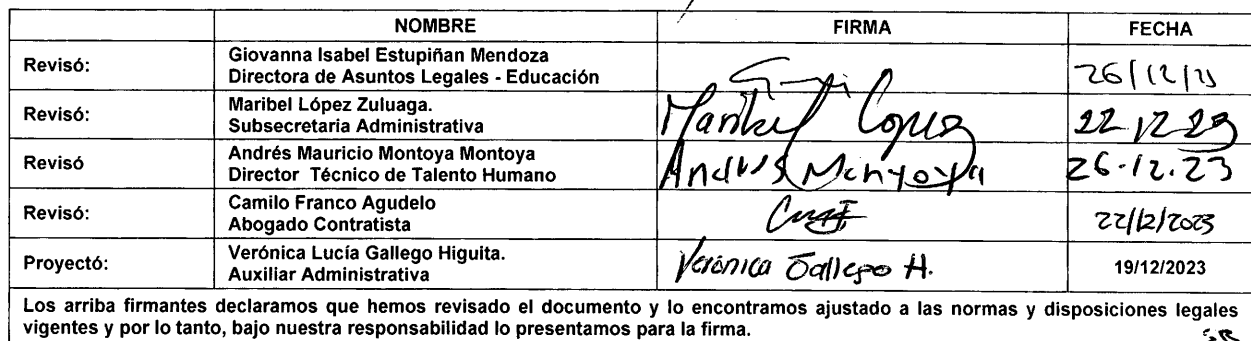 NOMBRE FIRMA FECHA
Revisó: Giovanna Isabel Estupiñan Mendoza
Directora de Asuntos Legales - Educación 26/12/23
Revisó: Maribel López Zuluaga. Maribel Lopez
Subsecretaria Administrativa 22 12 23
Revisó Andrés Mauricio Montoya Montoya Andrés Montoya 26.12.23
Director Técnico de Talento Humano
Revisó: Camilo Franco Agudelo
Abogado Contratista 22/12/2023
Proyectó: Verónica Lucía Gallego Higuita. Verónica Gallego H. 19/12/2023
Auxiliar Administrativa
Los arriba firmantes declaramos que hemos revisado el documento y lo encontramos ajustado a las normas y disposiciones legales
vigentes y por lo tanto, bajo nuestra responsabilidad lo presentamos para la firma.